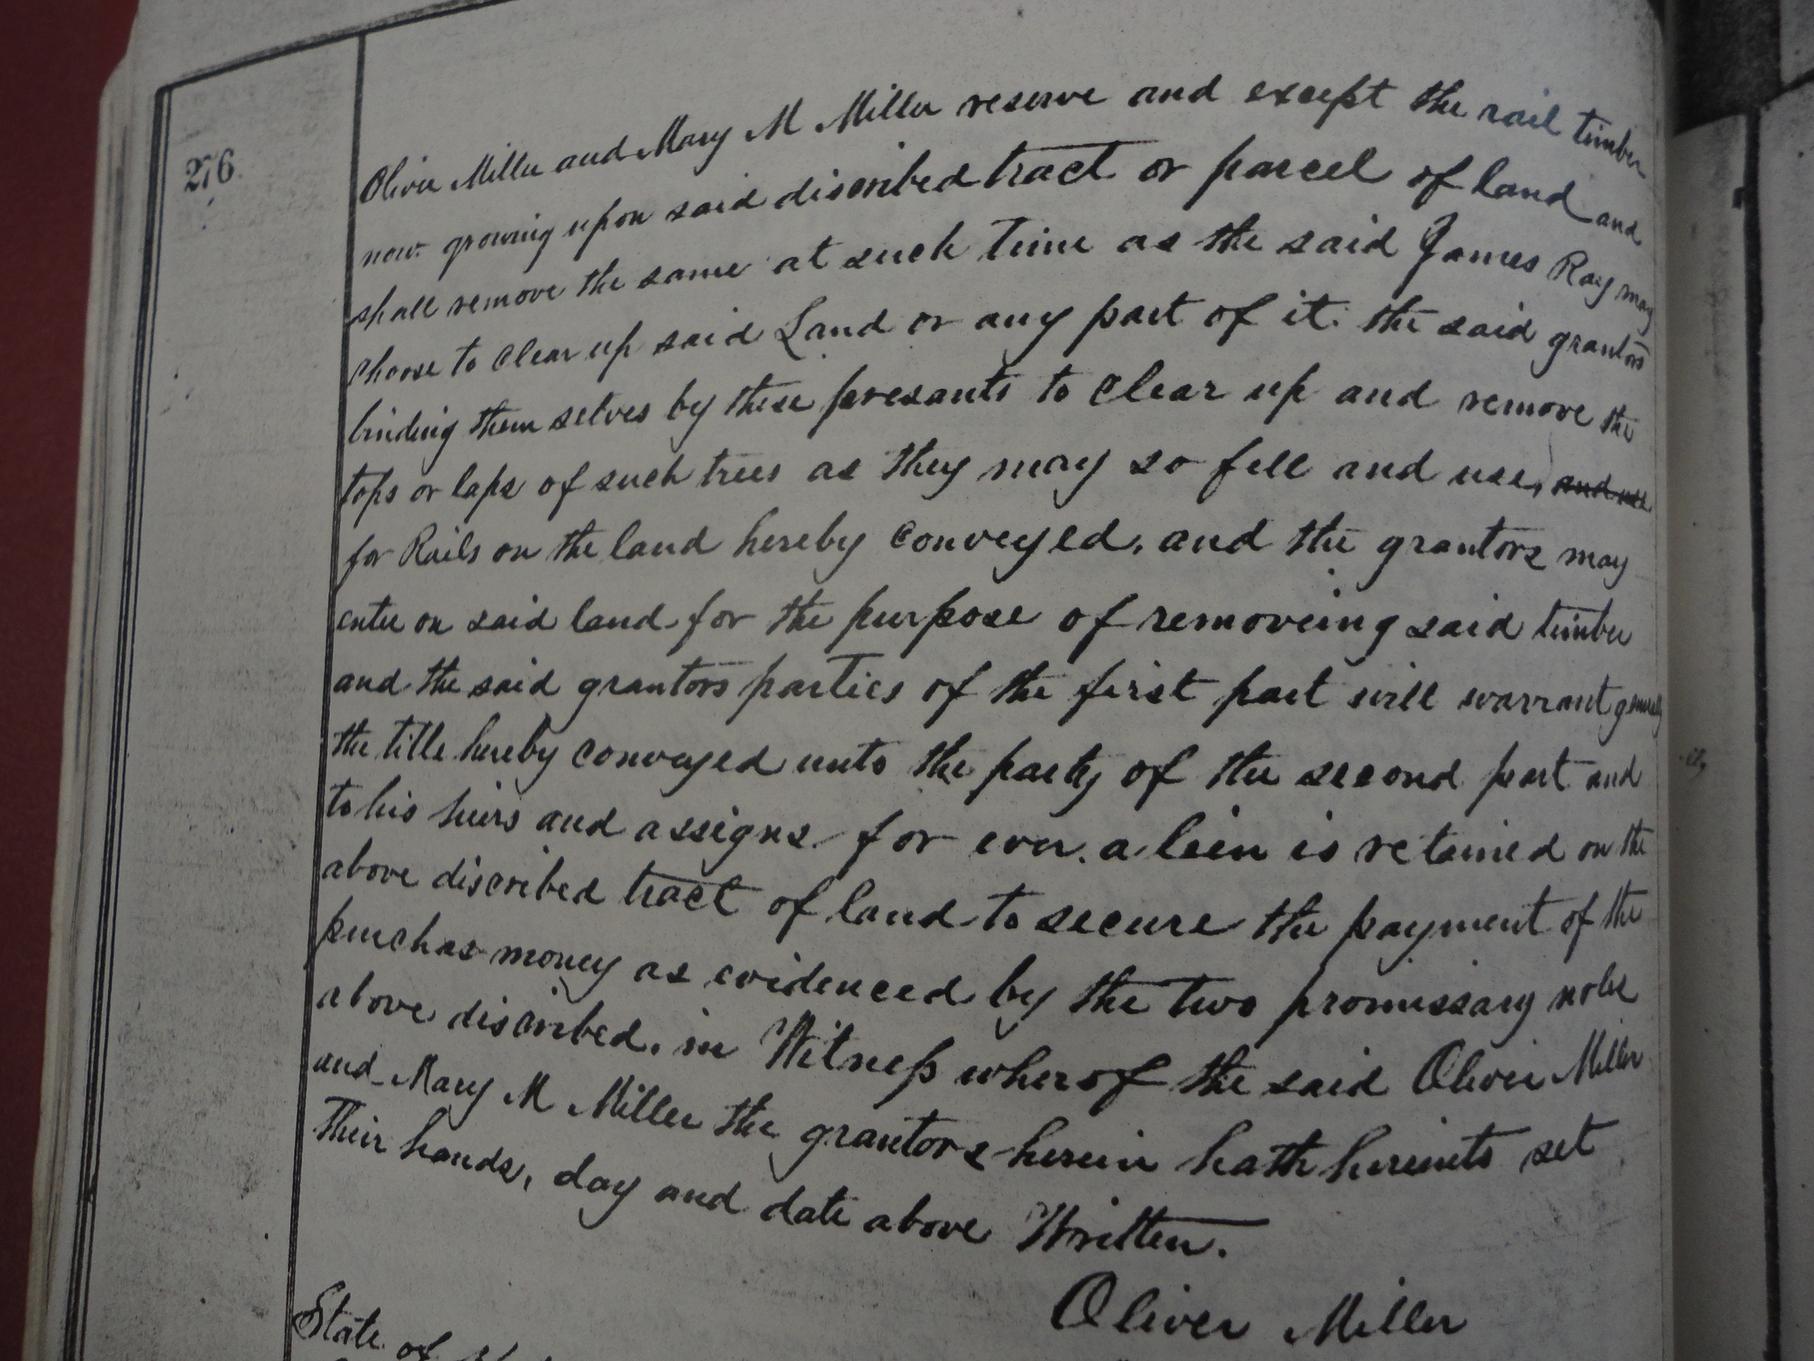 276
Oliver Miller and Mary M Miller reserve and except the rail timber
now growing upon said discribed tract or parcel of land and
shall remove the same at such time as the said James Ray may
choose to clear up said Land or any part of it. the said grantors
binding them selves by these presants to clear up and remove the
tops or laps of such trees as they may so fell and use, and use
for Rails on the land hereby conveyed, and the grantors may
enter on said land for the purpose of removeing said timber
and the said grantors parties of the first part will warrant generally
the title hereby conveyed unto the party of the second part and
to his heirs and assigns for ever. a lien is retained on the
above discribed tract of land to secure the payment of the
purchas money as evidenced by the two promissary notes
above discribed. in Witness wherof the said Oliver Miller
and Mary M Miller the grantors herein hath hereunto set
Their hands, day and date above Written.
Oliver Miller
State of